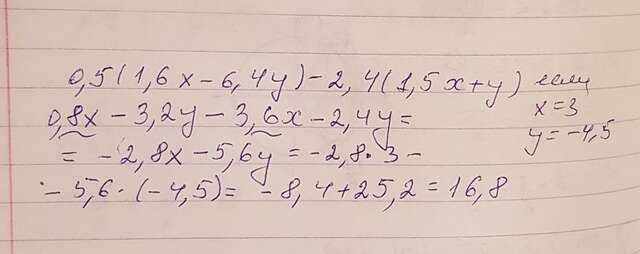 0,5(1,6x-6,4y)-2,4(1,5x+y) если
x=3
y=-4,5
0,8x-3,2y-3,6x-2,4y=
=-2,8x-5,6y=-2,8·3-
-5,6·(-4,5)=-8,4+25,2=16,8